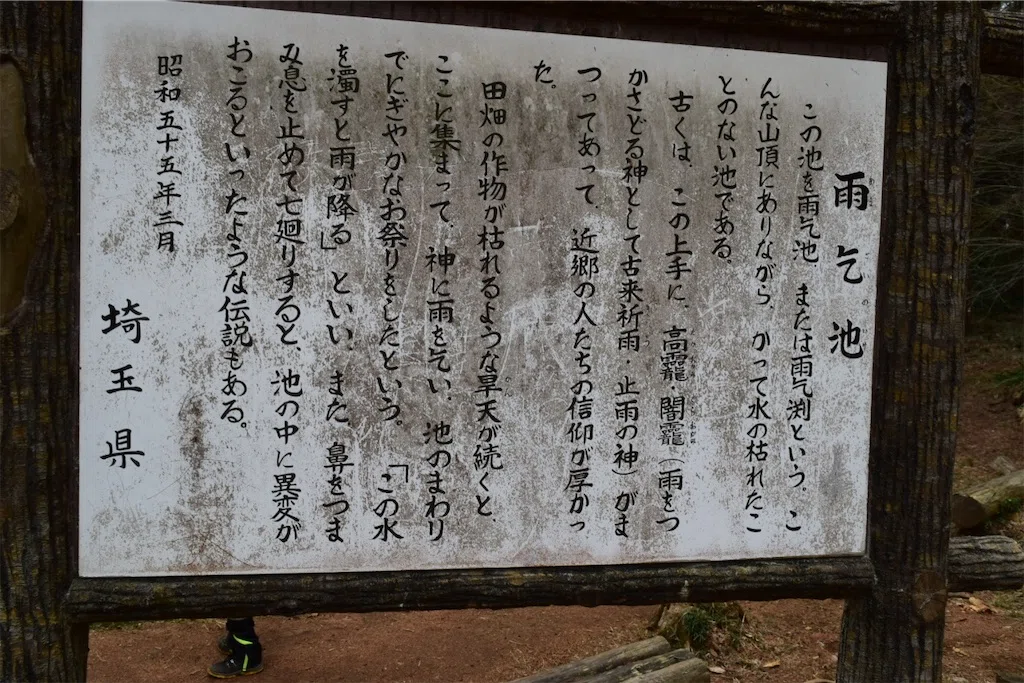 雨乞池
この池を雨乞池、または雨乞渕という。こ
んな山頂にありながら、かつて水の枯れたこ
とのない池である。
古くは、この上手に、高龗 闇龗（雨をつ
かさどる神として古来祈雨・止雨の神）がま
つってあって、近郷の人たちの信仰が厚かっ
た。
田畑の作物が枯れるような旱天が続くと、
ここに集まって、神に雨を乞い、池のまわり
でにぎやかなお祭りをしたという。「この水
を濁すと雨が降る」といい、また、鼻をつま
み息を止めて七廻りすると、池の中に異変が
おこるといったような伝説もある。
昭和五十五年三月
埼玉県